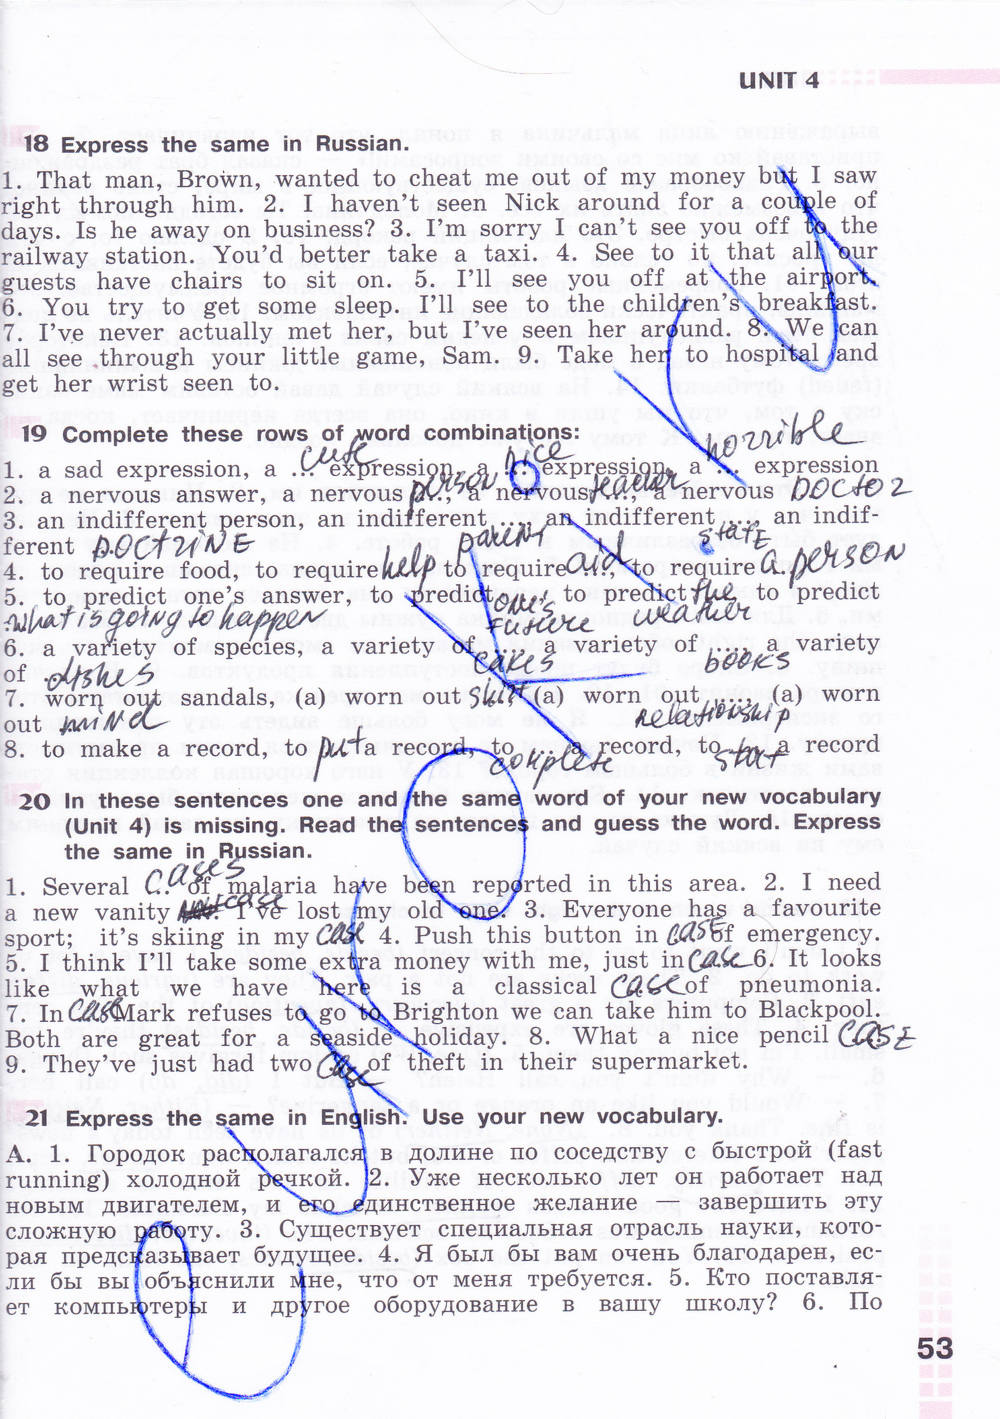 UNIT 4
18 Express the same in Russian.
1. That man, Brown, wanted to cheat me out of my money but I saw
right through him. 2. I haven't seen Nick around for a couple of
days. Is he away on business? 3. I'm sorry I can't see you off to the
railway station. You'd better take a taxi. 4. See to it that all our
guests have chairs to sit on. 5. I'll see you off at the airport.
6. You try to get some sleep. I'll see to the children's breakfast.
7. I've never actually met her, but I've seen her around. 8. We can
all see through your little game, Sam. 9. Take her to hospital and
get her wrist seen to.
19 Complete these rows of word combinations:
cute nice horrible
1. a sad expression, a ... expression, a ... expression, a ... expression
2. a nervous answer, a nervous person, a nervous teacher, a nervous DOCTOR
3. an indifferent person, an indifferent ..., an indifferent ..., an indif-
parent state
ferent DOCTRINE
4. to require food, to require help to require aid, to require a person
5. to predict one's answer, to predict one's future to predict the weather to predict
what is going to happen
6. a variety of species, a variety of ..., a variety of ..., a variety
cakes books
of dishes
7. worn out sandals, (a) worn out skirt (a) worn out ..., (a) worn
relationship
out mind
8. to make a record, to put a record, to ... a record, to ... a record
complete start
20 In these sentences one and the same word of your new vocabulary
(Unit 4) is missing. Read the sentences and guess the word. Express
the same in Russian.
1. Several cases of malaria have been reported in this area. 2. I need
a new vanity case I've lost my old one. 3. Everyone has a favourite
sport; it's skiing in my case 4. Push this button in case of emergency.
5. I think I'll take some extra money with me, just in case 6. It looks
like what we have here is a classical case of pneumonia.
7. In case Mark refuses to go to Brighton we can take him to Blackpool.
Both are great for a seaside holiday. 8. What a nice pencil CASE
9. They've just had two case of theft in their supermarket.
21 Express the same in English. Use your new vocabulary.
А. 1. Городок располагался в долине по соседству с быстрой (fast
running) холодной речкой. 2. Уже несколько лет он работает над
новым двигателем, и его единственное желание — завершить эту
сложную работу. 3. Существует специальная отрасль науки, кото-
рая предсказывает будущее. 4. Я был бы вам очень благодарен, ес-
ли бы вы объяснили мне, что от меня требуется. 5. Кто поставля-
ет компьютеры и другое оборудование в вашу школу? 6. По
53